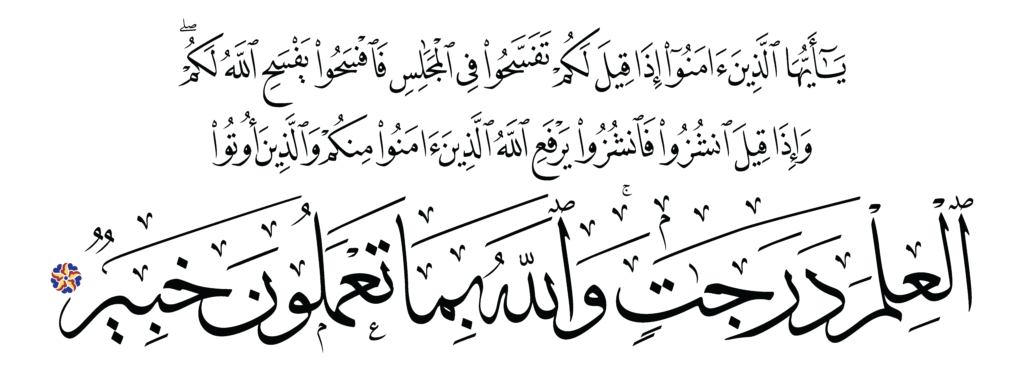 يَٰٓأَيُّهَا ٱلَّذِينَ ءَامَنُوٓا۟ إِذَا قِيلَ لَكُمْ تَفَسَّحُوا۟ فِى ٱلْمَجَٰلِسِ فَٱفْسَحُوا۟ يَفْسَحِ ٱللَّهُ لَكُمْ ۖ
وَإِذَا قِيلَ ٱنشُزُوا۟ فَٱنشُزُوا۟ يَرْفَعِ ٱللَّهُ ٱلَّذِينَ ءَامَنُوا۟ مِنكُمْ وَٱلَّذِينَ أُوتُوا۟
ٱلْعِلْمَ دَرَجَٰتٍ ۚ وَٱللَّهُ بِمَا تَعْمَلُونَ خَبِيرٌ